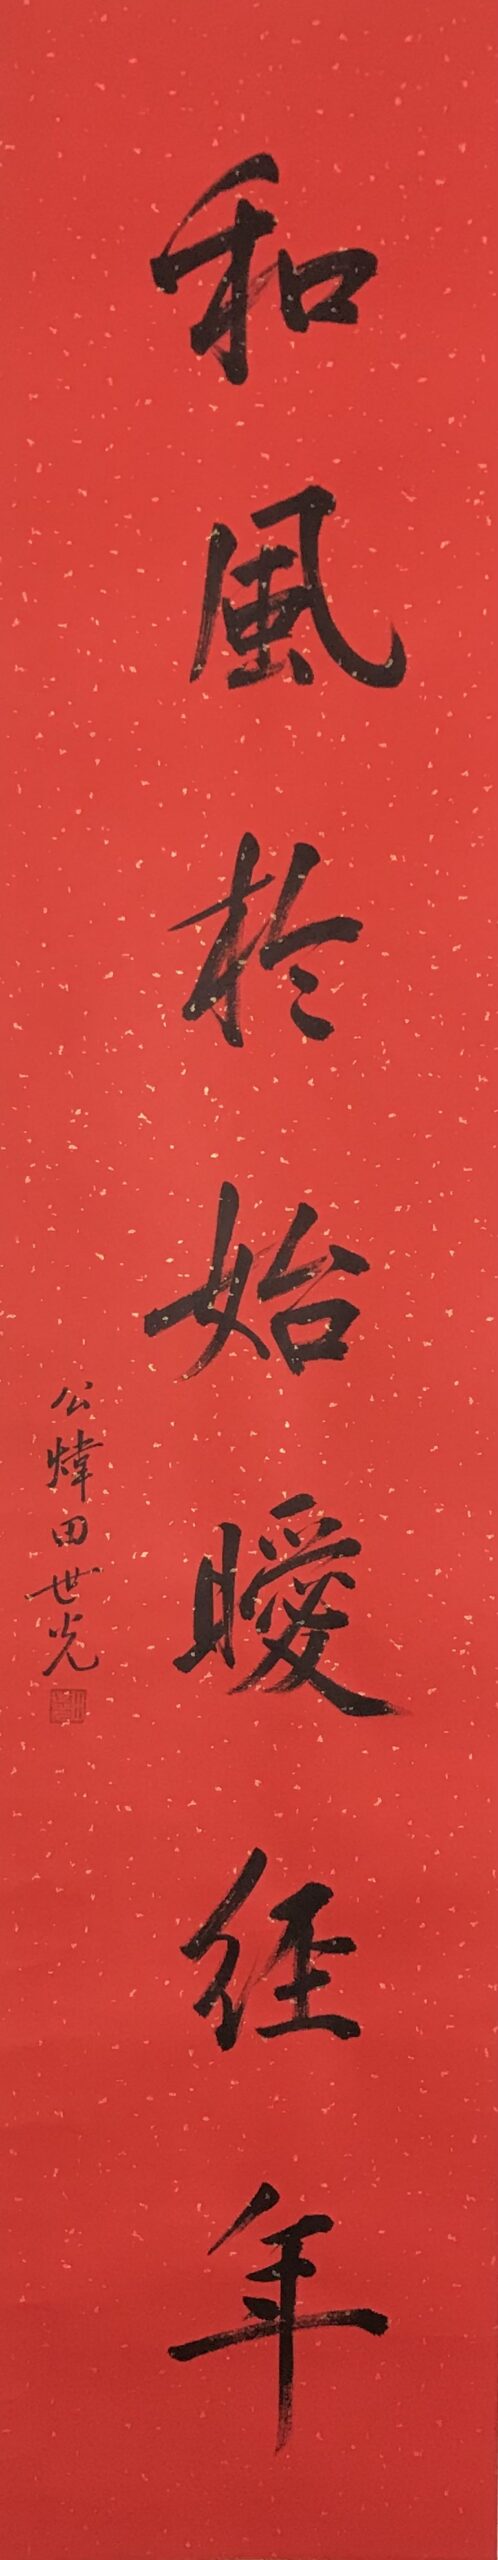 和風於始曖經年
公煒田世光